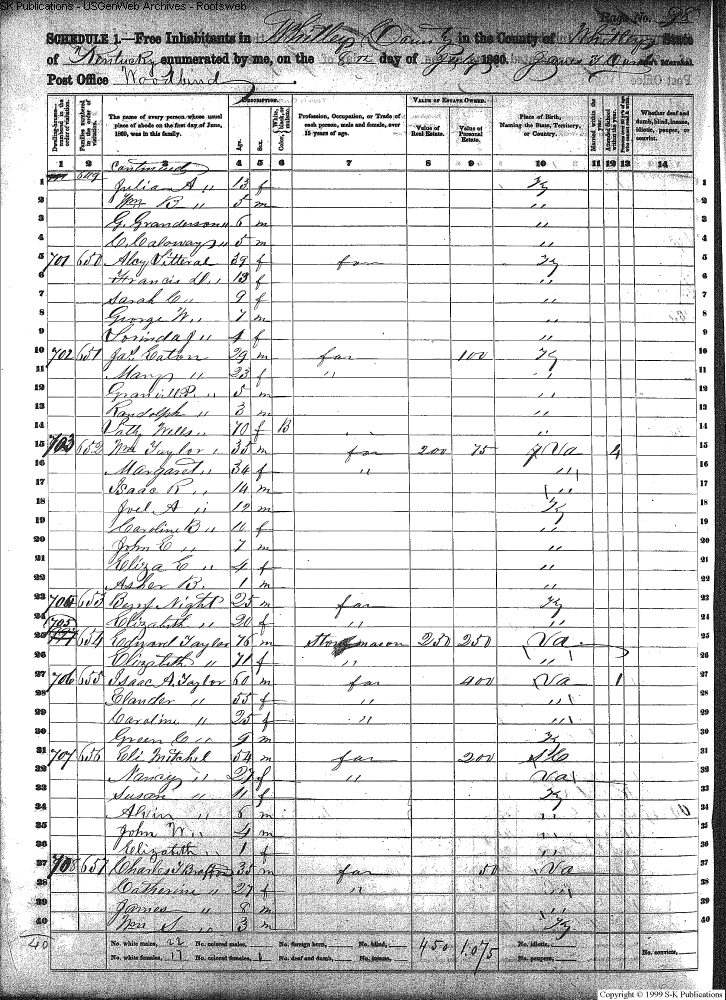 SK Publications - USGenWeb Archives - Rootsweb
Page No. 95
SCHEDULE 1.—Free Inhabitants in Whitley County in the County of Whitley State
of Kentucky enumerated by me, on the day of July 1860. Marshal.
Post Office Woodbine
DESCRIPTION. VALUE OF ESTATE OWNED.
Dwelling-houses—numbered in the order of visitation. Families numbered in the order of visitation. The name of every person whose usual place of abode on the first day of June, 1860, was in this family. Age. Sex. Color, Profession, Occupation, or Trade of each person, male and female, over 15 years of age. Value of Real Estate. Value of Personal Estate. Place of Birth, Naming the State, Territory, or Country. Married within the year. Attended School within the year. Whether deaf and dumb, blind, insane, idiotic, pauper, or convict.
1 2 3 4 5 6 7 8 9 10 11 12 13 14
649 Continued
1 Julian A " 13 f Ky 1
2 Wm B " 5 m " 2
3 G. Granderson " 6 m " 3
4 C. Caloway " 5 m " 4
5 701 650 Alcy Vitteral 39 f far Ky 5
6 Francis D. " 13 f " 6
7 Sarah C " 9 f " 7
8 George W. " 7 m " 8
9 Lorinda J " 4 f " 9
10 702 651 Jas. Eaton 29 m far 100 Ky 10
11 Mary " 23 f " " 11
12 Granvill P. " 5 m " 12
13 Randolph " 3 m " 13
14 Wells " 70 f B " 14
15 703 652 Wm Taylor " 35 m far 200 75 Va 4 15
16 Margaret " 34 f " " 16
17 Isaac R " 14 m " 17
18 Joel A " 12 m Ky 18
19 Caroline B " 11 f " 19
20 John C " 7 m " 20
21 Eliza E " 4 f " 21
22 Asher B. 1 m " 22
23 704 653 Benj Night 25 m far Ky 23
24 Elizabeth " 20 f " " 24
25 705 654 Edward Taylor 76 m Stone mason 250 250 Va 25
26 Elizabeth " 71 f " " 26
27 706 655 Isaac A. Taylor 60 m far 400 Va 1 27
28 Elander " 55 f " " 28
29 Caroline " 25 f " " 29
30 Green C " 9 m Ky 30
31 707 656 Eli Mitchel 54 m far 200 S C 31
32 Nancy " 27 f " Va 32
33 Susan " 11 f Ky 33
34 Alvin " 6 m " 34
35 John W. " 4 m " 35
36 Elizabeth " 1 f " 36
37 708 657 Charles 35 m far 50 Va 37
38 Catherine " 27 f " " 38
39 James " 8 m " 39
40 Wm S. " 3 m Ky 40
40 No. white males, 22 No. colored males, No. foreign born, No. blind, 450 1.075 No. idiotic,
No. white females, 17 No. colored females, 1 No. deaf and dumb, No. insane, No. paupers, No. convicts,
Copyright © 1999 S-K Publications